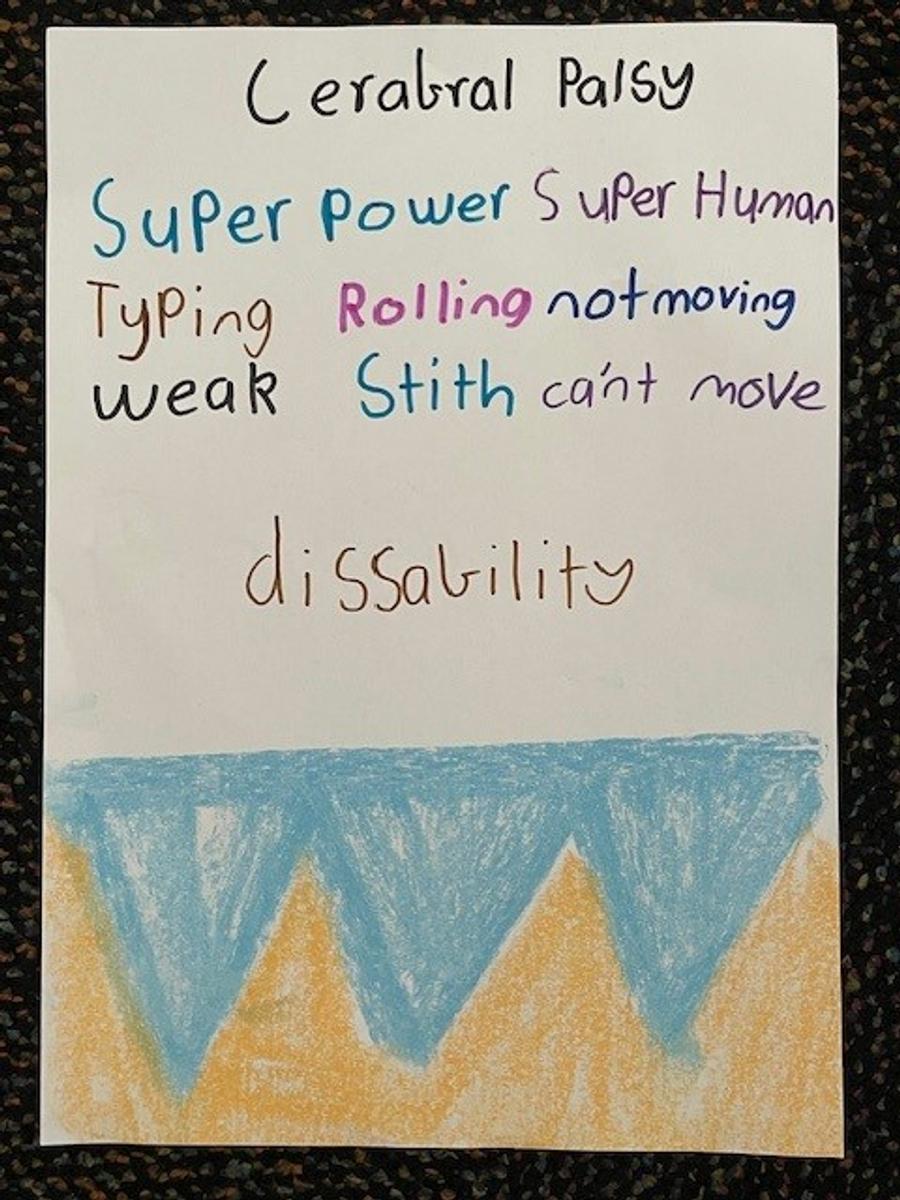 Cerabral Palsy
Super power Super Human
Typing Rolling not moving
weak Stith can't move
dissability